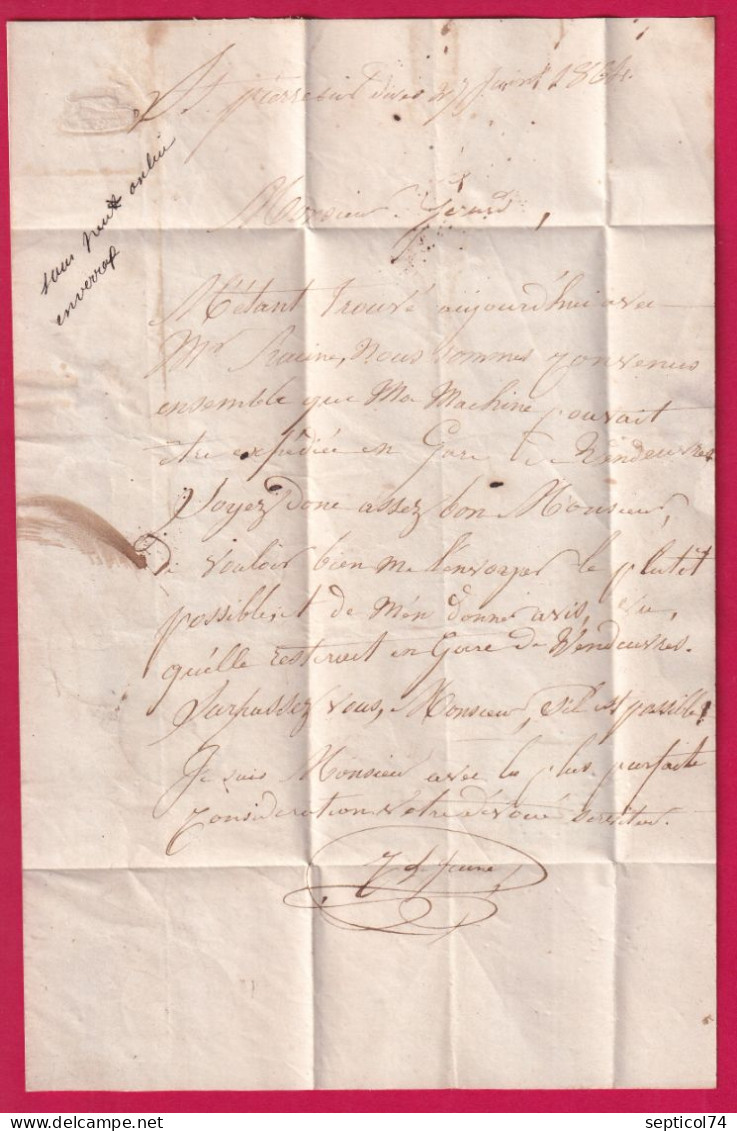 St pierre sur dives 27 Juint 1864.
sous huit
enverra
Monsieur Gérard,
M'étant trouvé aujourd'hui avec
Mr Racine, Nous sommes convenus
ensemble que Ma Machine pouvait
être expédiée en Gare de Vendeuvres
Soyez donc assez bon Monsieur,
de vouloir bien me l'envoyer le plutôt
possible et de m'en donner avis, vu,
qu'elle resterait en Gare de Vendeuvres.
Surpassez vous, Monsieur, s'il est possible
Je suis Monsieur avec la plus parfaite
Considération votre dévoué serviteur.
Jeune
septicol74